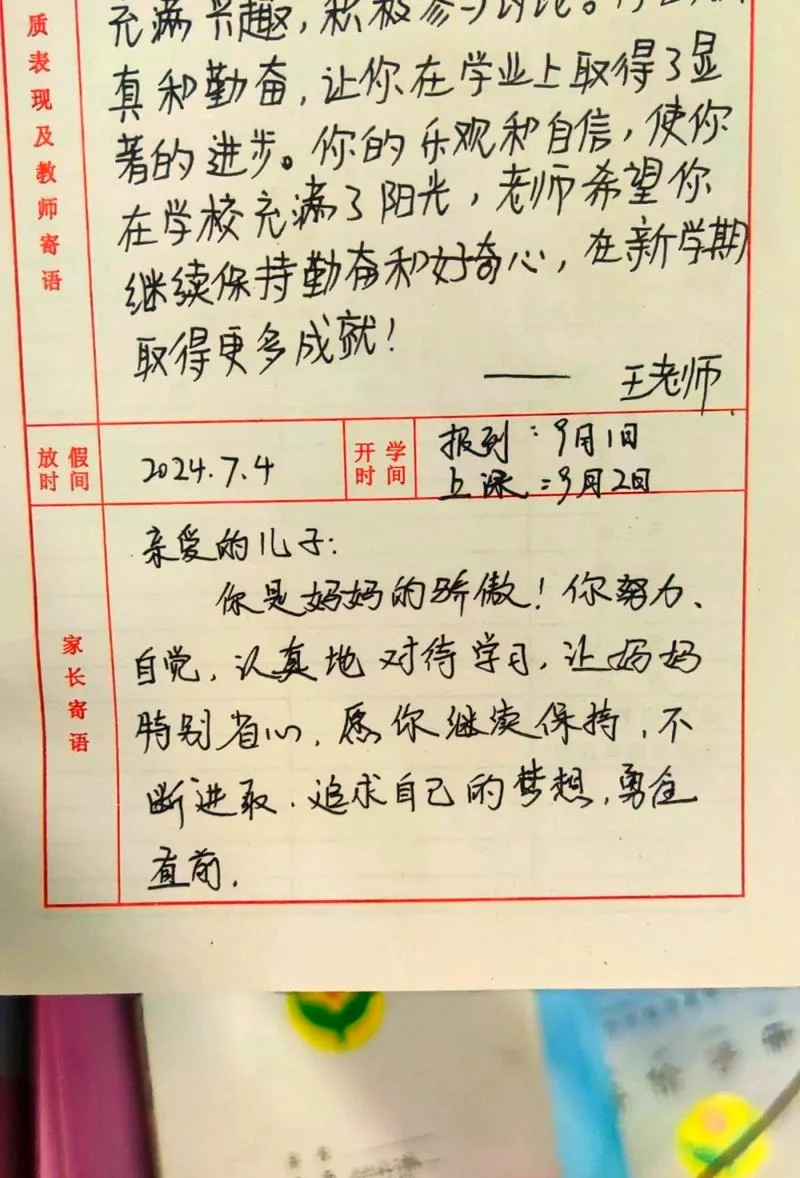 质表现及教师寄语
充满兴趣,积极参与讨论。
真和勤奋,让你在学业上取得了显
著的进步。你的乐观和自信,使你
在学校充满了阳光,老师希望你
继续保持勤奋和好奇心,在新学期
取得更多成就!
—— 王老师
放假时间
2024.7.4
开学时间
报到:9月1日
上课:9月2日
家长寄语
亲爱的儿子:
你是妈妈的骄傲!你努力、
自觉,认真地对待学习,让妈妈
特别省心,愿你继续保持,不
断进取.追求自己的梦想,勇往
直前.